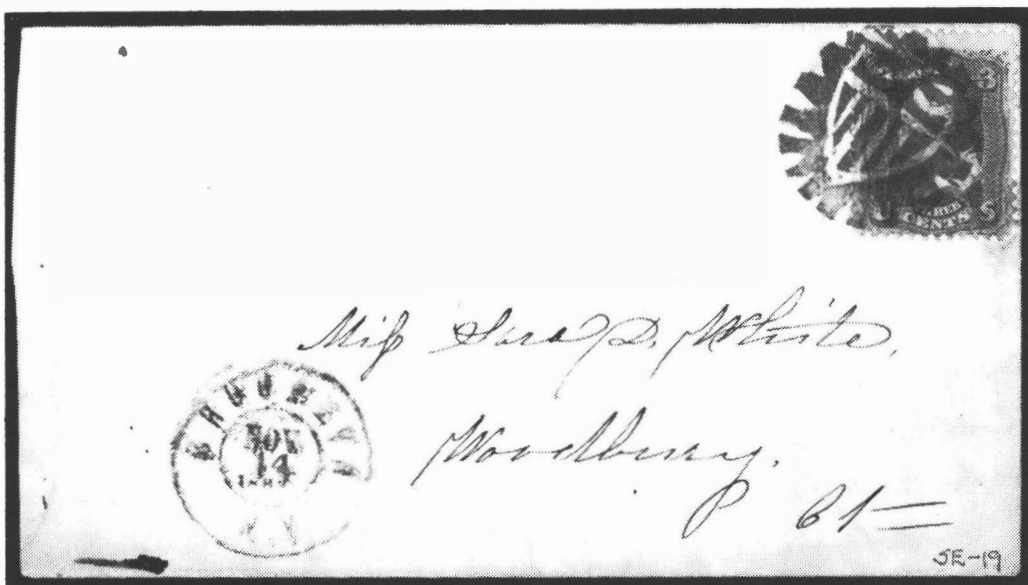 3
THREE
CENTS
Miss Sara D. White,
Woodbury.
Ct
NOV
14
SE-19